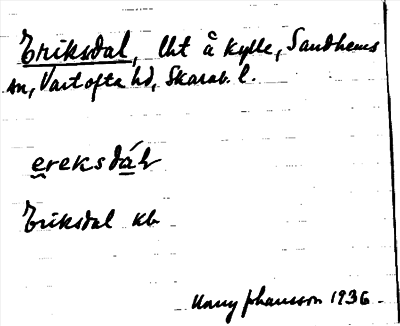 Eriksdal, Uht å Kylle, Sandhems
sn, Vartofta hd, Skarab. l.
ereksdál
Eriksdal kb
Harry Johansson 1936